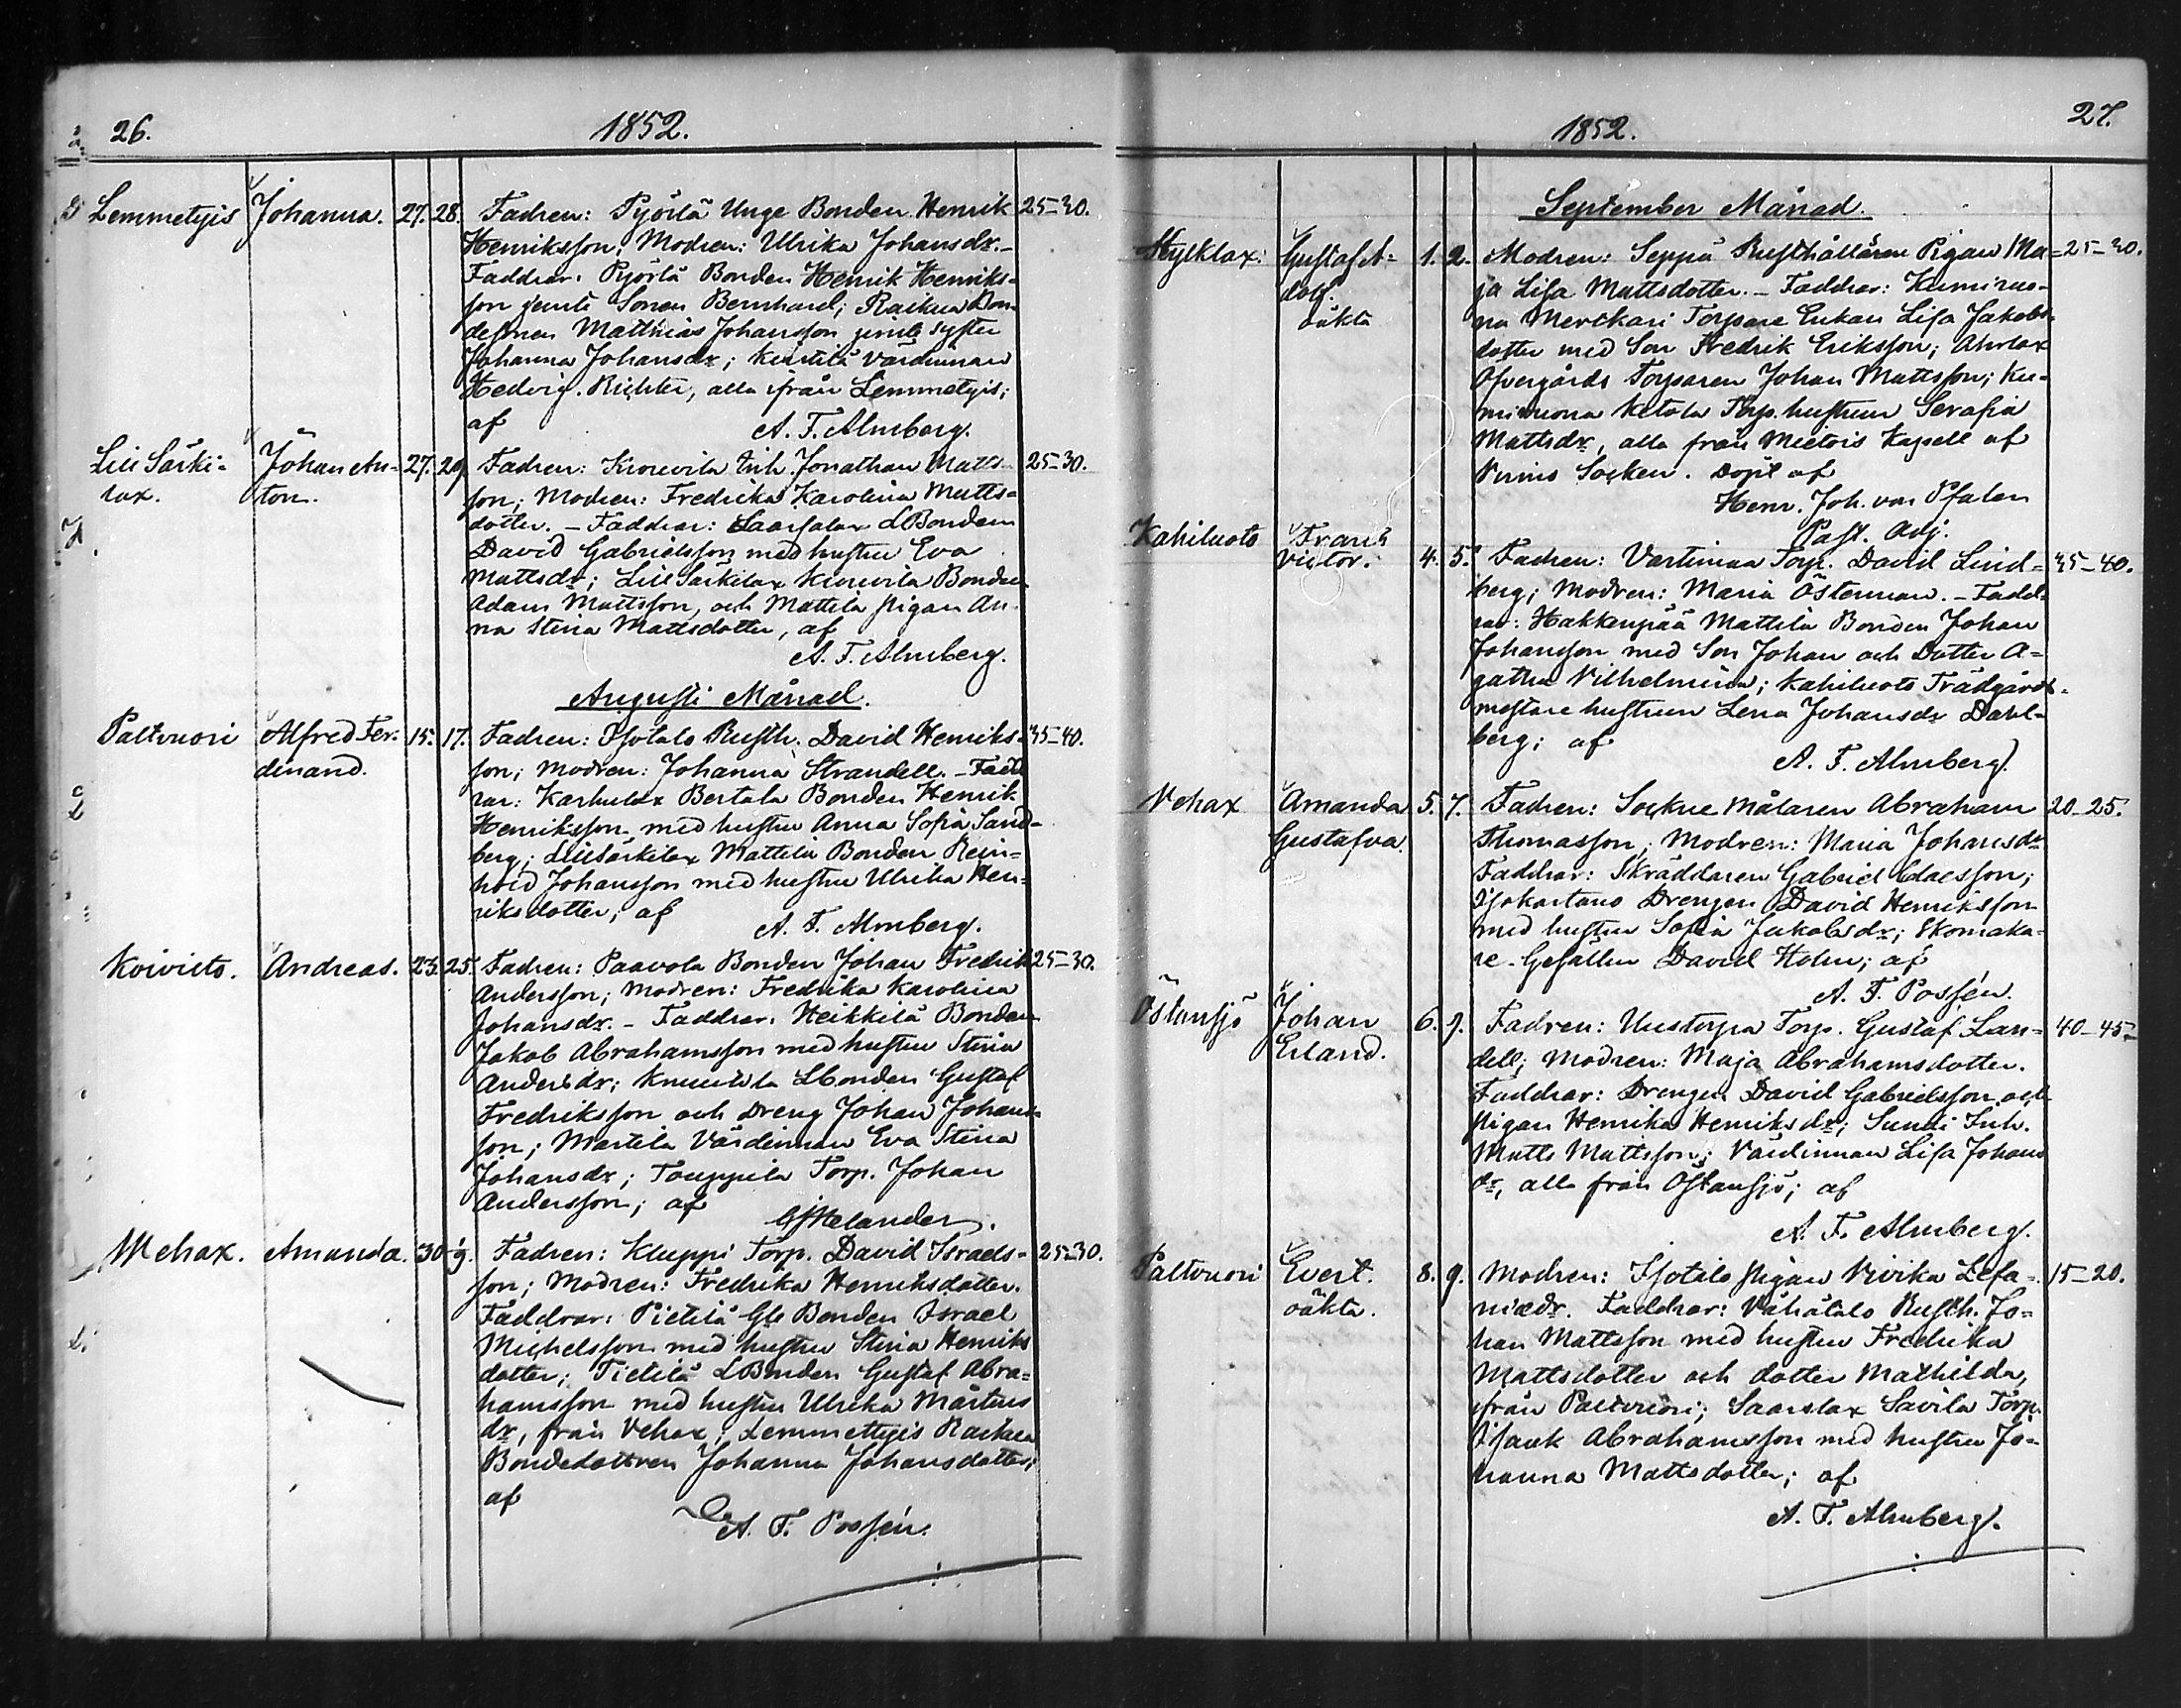 26.
1852.
Lemmetyis
Johanna.
27. 28.
Fadren: Pyörlä Unge Bonden Henrik
25-30.
Henriksson; Modren: Ulrika Johansdr. -
Faddrar: Pyörlä Bonden Henrik Henriks-
son jemte Sonen Bernhard; Raikua Bon-
desonen Matthias Johansson jemte syster
Johanna Johansdr; Kierilä Värdinnan
Hedvig Richter, alla ifrån Lemmetyis;
af
A. F. Almberg.
Lill Särki-
lax.
Johan An-
ton.
27. 29.
Fadren: Knuutila Inh. Jonathan Matts-
25-30.
son; Modren: Fredrika Karolina Matts-
dotter. - Faddrar: Saarsalax LBonden
David Gabrielsson med hustru Eva
Mattsdr; Lill Särkilax Knuutila Bonden
Adam Mattsson, och Mattila pigan An-
na Stina Mattsdotter, af
A. F. Almberg.
Augusti Månad.
Paltvuori
Alfred Fer-
dinand.
15. 17.
Fadren: Isotalo Rusth. David Henriks-
35-40.
son; Modren: Johanna Strandell. - Fadd
rar: Karhulax Bertala Bonden Henrik
Henriksson med hustru Anna Sofia Sand-
berg; Lillsärkilax Mattila Bonden Rein-
hold Johansson med hustru Ulrika Hen-
riksdotter; af
A. F. Almberg.
Koivisto.
Andreas.
23. 25.
Fadren: Paavola Bonden Johan Fredrik
25-30.
Andersson; Modren: Fredrika Karolina
Johansdr. - Faddrar: Heikkilä Bonden
Jakob Abrahamsson med hustru Stina
Andersdr; Knuutila LBonden Gustaf
Fredriksson och Dreng Johan Johans-
son; Martila Värdinnan Eva Stina
Johansdr; Tauppila Torp. Johan
Andersson; af
Helander.
Vehax.
Amanda.
30. 9.
Fadren: Kluppi Torp. David Israels-
25-30.
son; Modren: Fredrika Henriksdotter.
Faddrar: Pietilä Gle Bonden Israel
Michelsson med hustru Stina Henriks
dotter; Pietilä LBonden Gustaf Abra-
hamsson med hustru Ulrika Mårtens
dr, från Vehax; Lemmettyis Raikua
Bondedottren Johanna Johansdotter;
af
A. F. Possén.
1852.
27.
September Månad.
Hylklax:
Gustaf A-
dolf.
oäkta
1. 2.
Modren: Seppä Rusthållaren Pigan Ma-
25-30.
ja Lisa Mattsdotter. - Faddrar:
Torpare Enkan Lisa Jakobs-
dotter med Son Fredrik Eriksson; Ahrlax
Öfvergårds Torparen Johan Mattsson;
Ketola Torp. hustrun Serafia
Mattsdr, alla från Mietois Kapell af
Virmo Socken. Döpt af
Henr. Joh. von Pfaler
Past. Adj.
Kahiluoto
Frans
Victor.
4. 5.
Fadren: Vartimaa Torp. David Lind-
35-40.
berg; Modren: Maria Österman. - Fadd-
rar: Hakkenpää Mattila Bonden Johan
Johansson med Son Johan och Dotter A-
gatha Vilhelmina; Kahiluoto Trädgårds-
mästare hustrun Lena Johansdr Dahl-
berg; af
A. F. Almberg.
Vehax
Amanda
Gustafva.
5. 7.
Fadren: Sockne Målaren Abraham
20-25.
Thomasson; Modren: Maria Johansdr
Faddrar: Skräddaren Gabriel Claesson;
Isokartano Drengen David Henriksson
med hustru Sofia Jakobsdr; Skomaka-
re-Gesällen David Holm; af
A. F. Possén.
Östansjö
Johan
Erland.
6. 9.
Fadren: Uustorpa Torp. Gustaf Lan-
40-45.
dell; Modren: Maja Abrahamsdotter.
Faddrar: Drengen David Gabrielsson och
pigan Henrika Henriksdr; Sundi Inh.
Matts Mattsson; Värdinnan Lisa Johans
dr, alla från Östansjö; af
A. F. Almberg.
Paltvuori
Evert.
oäkta.
8. 9.
Modren: Isotalo pigan Vivika Lefa-
15-20.
niædr. Faddrar: Vähätalo Rusth. Jo-
han Mattsson med hustru Fredrika
Mattsdotter och dotter Mathilda,
ifrån Paltvuori; Saarslax Savila Torp.
Isaak Abrahamsson med hustru Jo-
hanna Mattsdotter; af
A. F. Almberg.